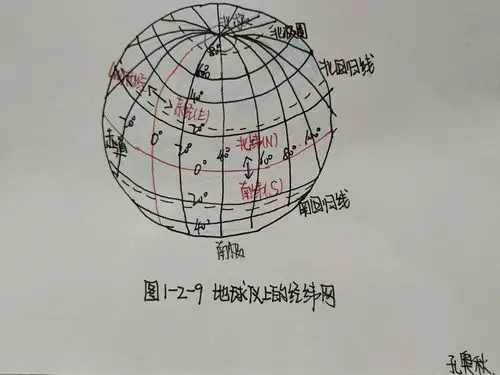 北极
北极圈
80°
60°
北回归线
40°
东经(E)
20°
20°
赤道
0°
20°
40°
北纬(N)
60°
80°
0°
南纬(S)
20°
南回归线
40°
南极
图1-2-9 地球仪上的经纬网
孔奥秋